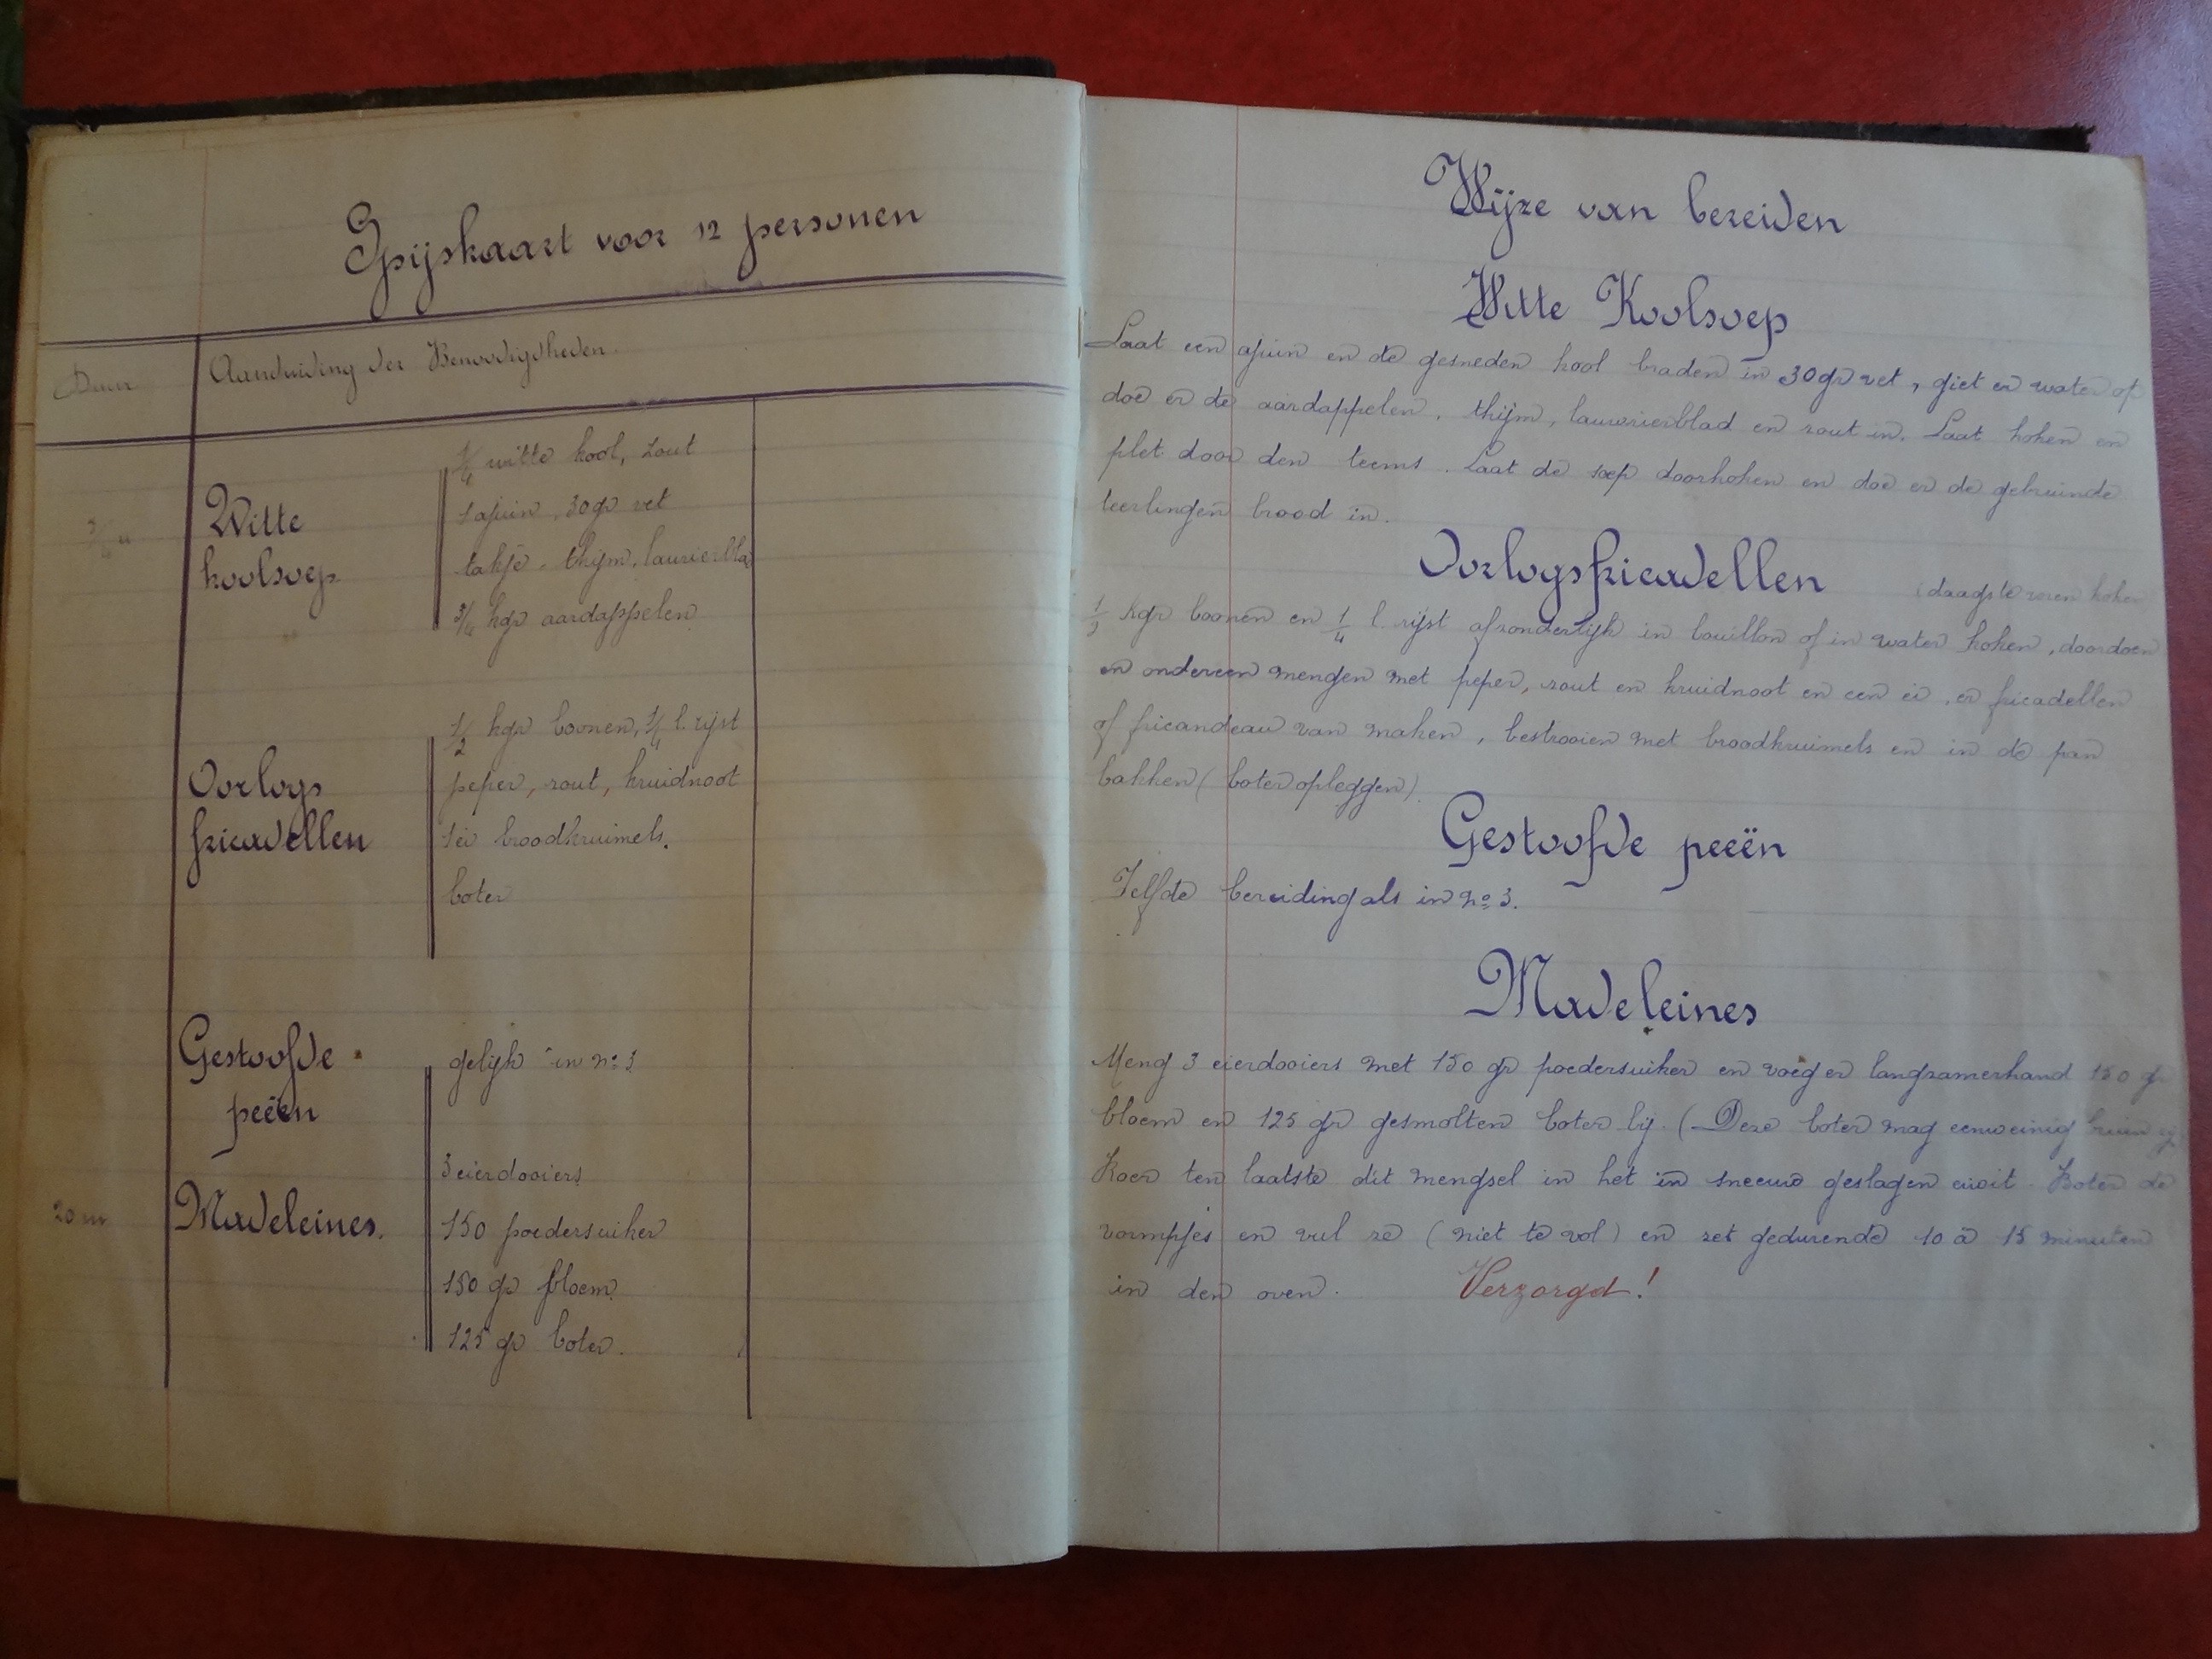 Spijskaart voor 12 personen
Duur
Aanduiding der Benoodigdheden.
3/4 u
Witte
koolsoep
1/4 witte kool, zout
1 ajuin, 30 gr vet
takje thijm, laurierbla
3/4 kgr aardappelen
Oorlogs
fricadellen
1/2 kgr boonen, 1/4 l. rijst
peper, zout, kruidnoot
1 ei broodkruimels.
boter
Gestoofde
peeën
gelijk in no 3
20 m
Madeleines.
3 eierdooiers
150 poedersuiker
150 gr bloem
125 gr boter.
Wijze van bereiden
Witte Koolsoep
Laat een ajuin en de gesneden kool braden in 30 gr vet, giet er water op
doe er de aardappelen, thijm, lauwrierblad en zout in. Laat koken en
plet door den teems. Laat de soep doorkoken en doe er de gebruinde
teerlingen brood in.
Oorlogsfricadellen
(daags te voren koken
kgr boonen en 1/4 l. rijst afzonderlijk in bouillon of in water koken, doordoen
en ondereen mengen met peper, zout en kruidnoot en een ei, er fricadellen
of fricandeau van maken, bestrooien met broodkruimels en in de pan
bakken (boter opleggen).
Gestoofde peeën
Zelfde bereiding als in no 3.
Madeleines
Meng 3 eierdooiers met 150 gr poedersuiker en voeg er langzamerhand 150 gr
bloem en 125 gr gesmolten boter bij. (Deze boter mag eenweinig bruin zijn
Roer ten laatste dit mengsel in het in sneeuw geslagen eiwit. Boter de
vormpjes en vul ze (niet te vol) en zet gedurende 10 à 15 minuten
in den oven.
Verzorgd!